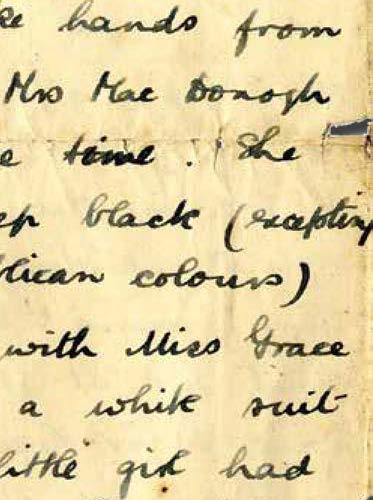 ke hands from
Mrs Mac Donogh
e time. She
ep black (excepting
blican colours)
with Miss Grace
a white suit
little girl had